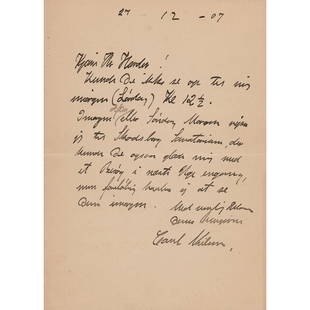 27 12 - 07
Kjære Hr Harder!
Kunde De ikke se op til mig
imorgen (Lördag) Kl 12½.
Imorgen eller Söndag Morgen rejser
jeg til Skodsborg Sanatorium, der
kunde De ogsaa glæde mig med
et Besög i næste Uge engang,
men foreløbig haaber jeg at se
Dem imorgen.
Med venlig Hilsen
Deres
Carl Nielsen.